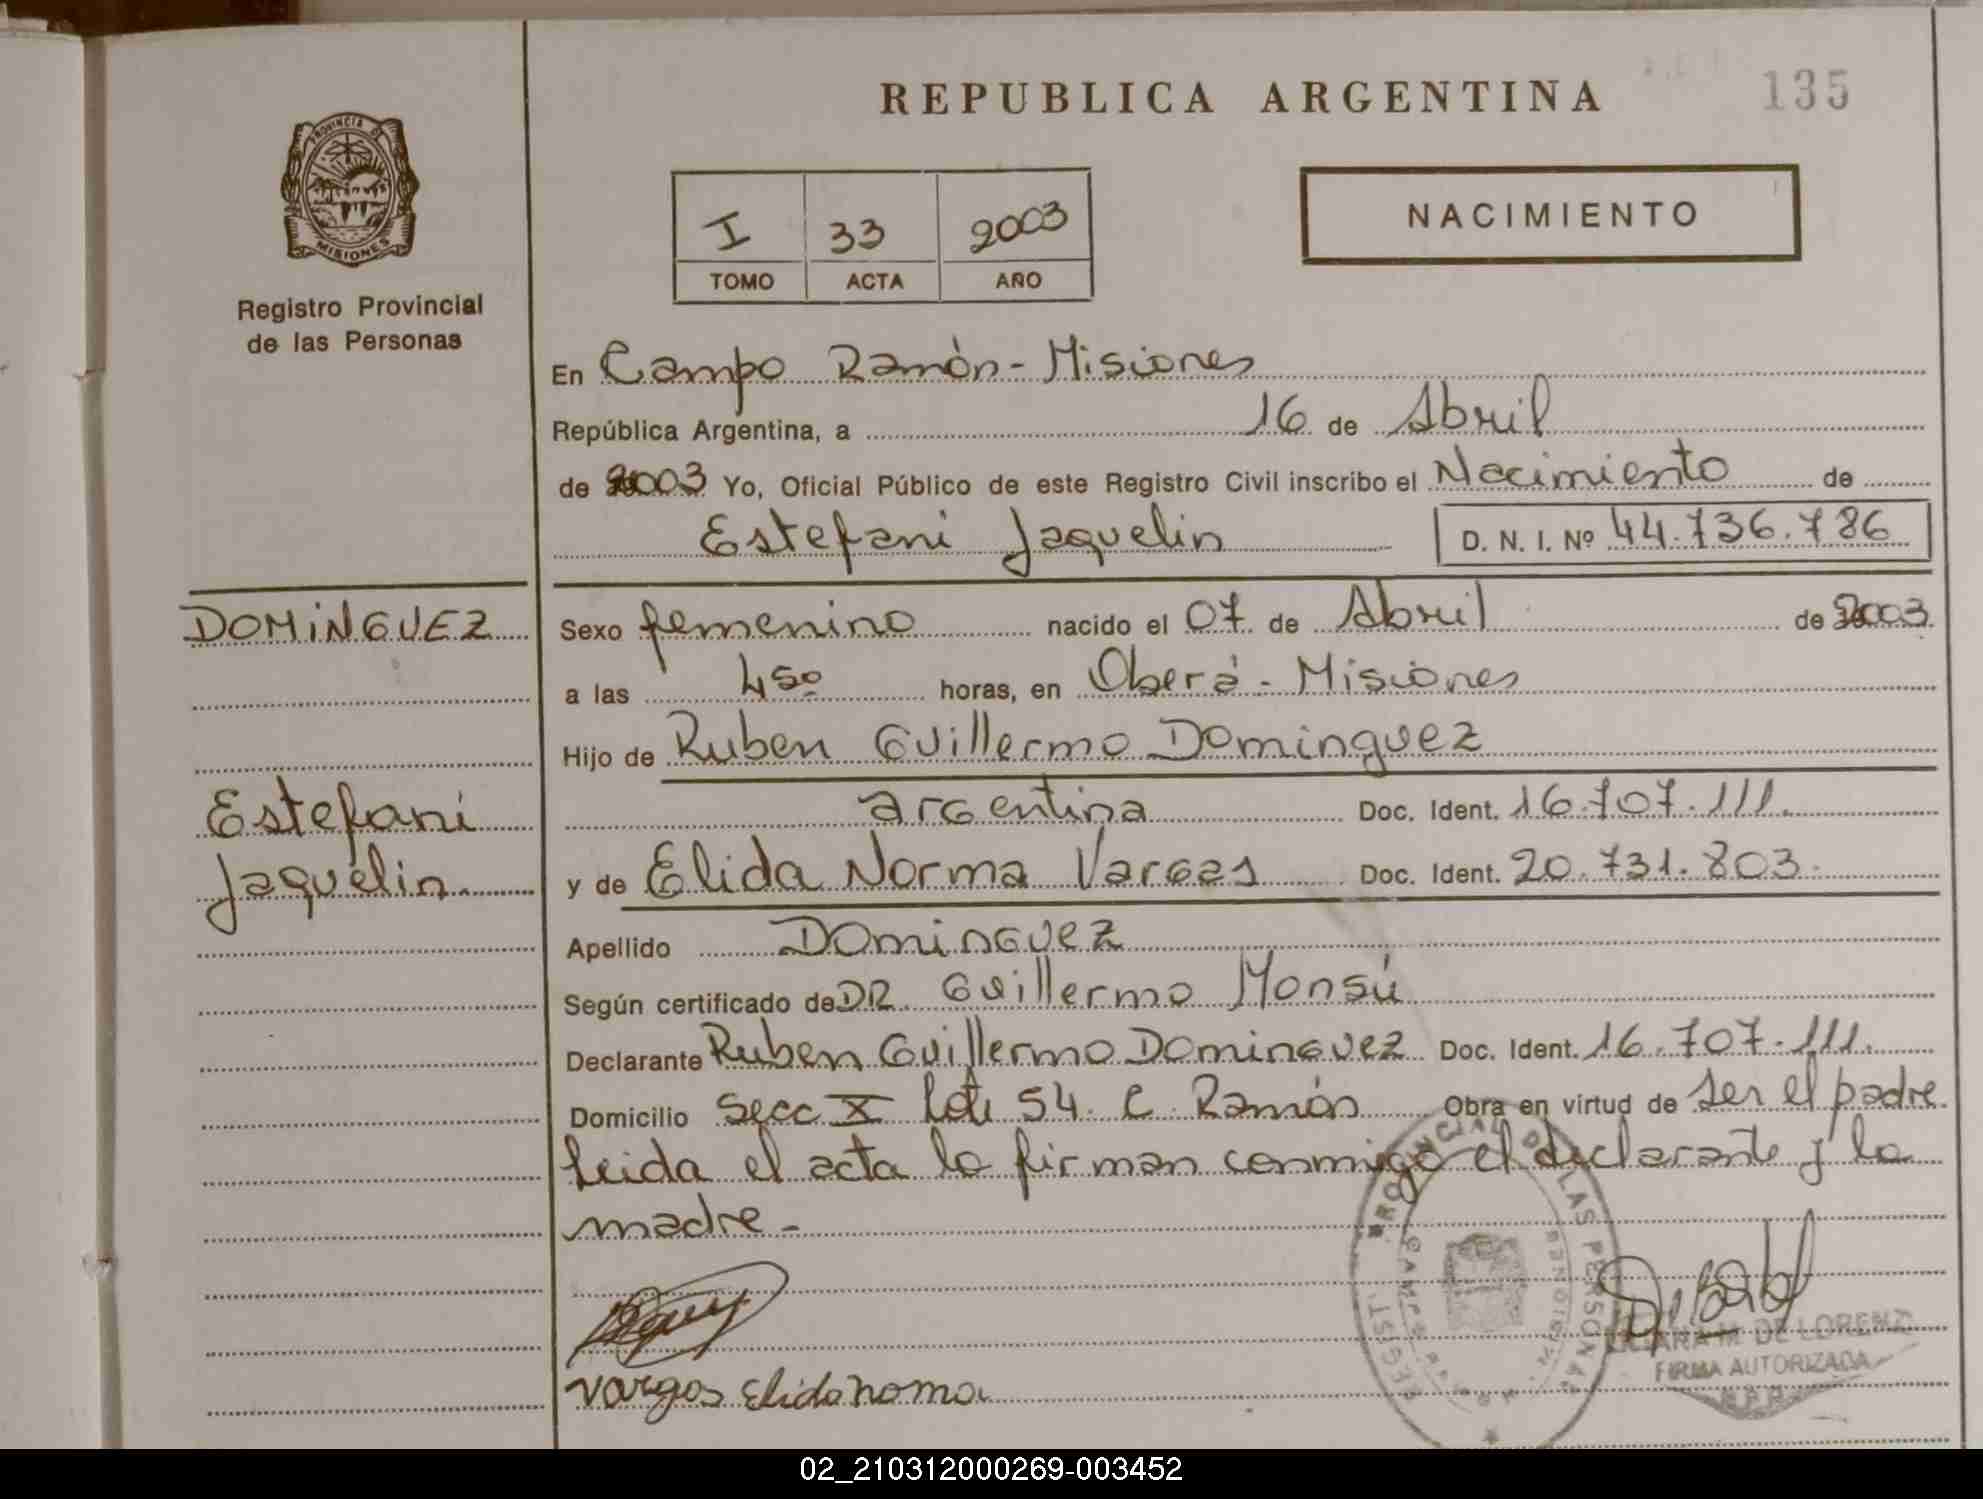 REPUBLICA ARGENTINA
135
PROVINCIA DE
MISIONES
Registro Provincial
de las Personas
I 33 2003
TOMO ACTA AÑO
NACIMIENTO
En Campo Ramón - Misiones
República Argentina, a 16 de Abril
de 2003 Yo, Oficial Público de este Registro Civil inscribo el Nacimiento de
Estefani Jaquelin D. N. I. Nº 44.736.786
DOMINGUEZ
Estefani
Jaquelin.
Sexo femenino nacido el 07 de Abril de 2003
a las 450 horas, en Oberá - Misiones
Hijo de Ruben Guillermo Dominguez
argentina Doc. Ident. 16.707.111.
y de Elida Norma Vargas Doc. Ident. 20.731.803.
Apellido Dominguez
Según certificado de DR. Guillermo Monsú
Declarante Ruben Guillermo Dominguez Doc. Ident. 16.707.111.
Domicilio Secc X Lote 54. C. Ramón Obra en virtud de ser el padre
Leida el acta la firman conmigo el declarante y la
madre -
PROVINCIAL DE LAS PERSONAS
CAMPO RAMON
MISIONES
Vargas Elida noma
DE LORENZ
FIRMA AUTORIZADA
02_210312000269-003452